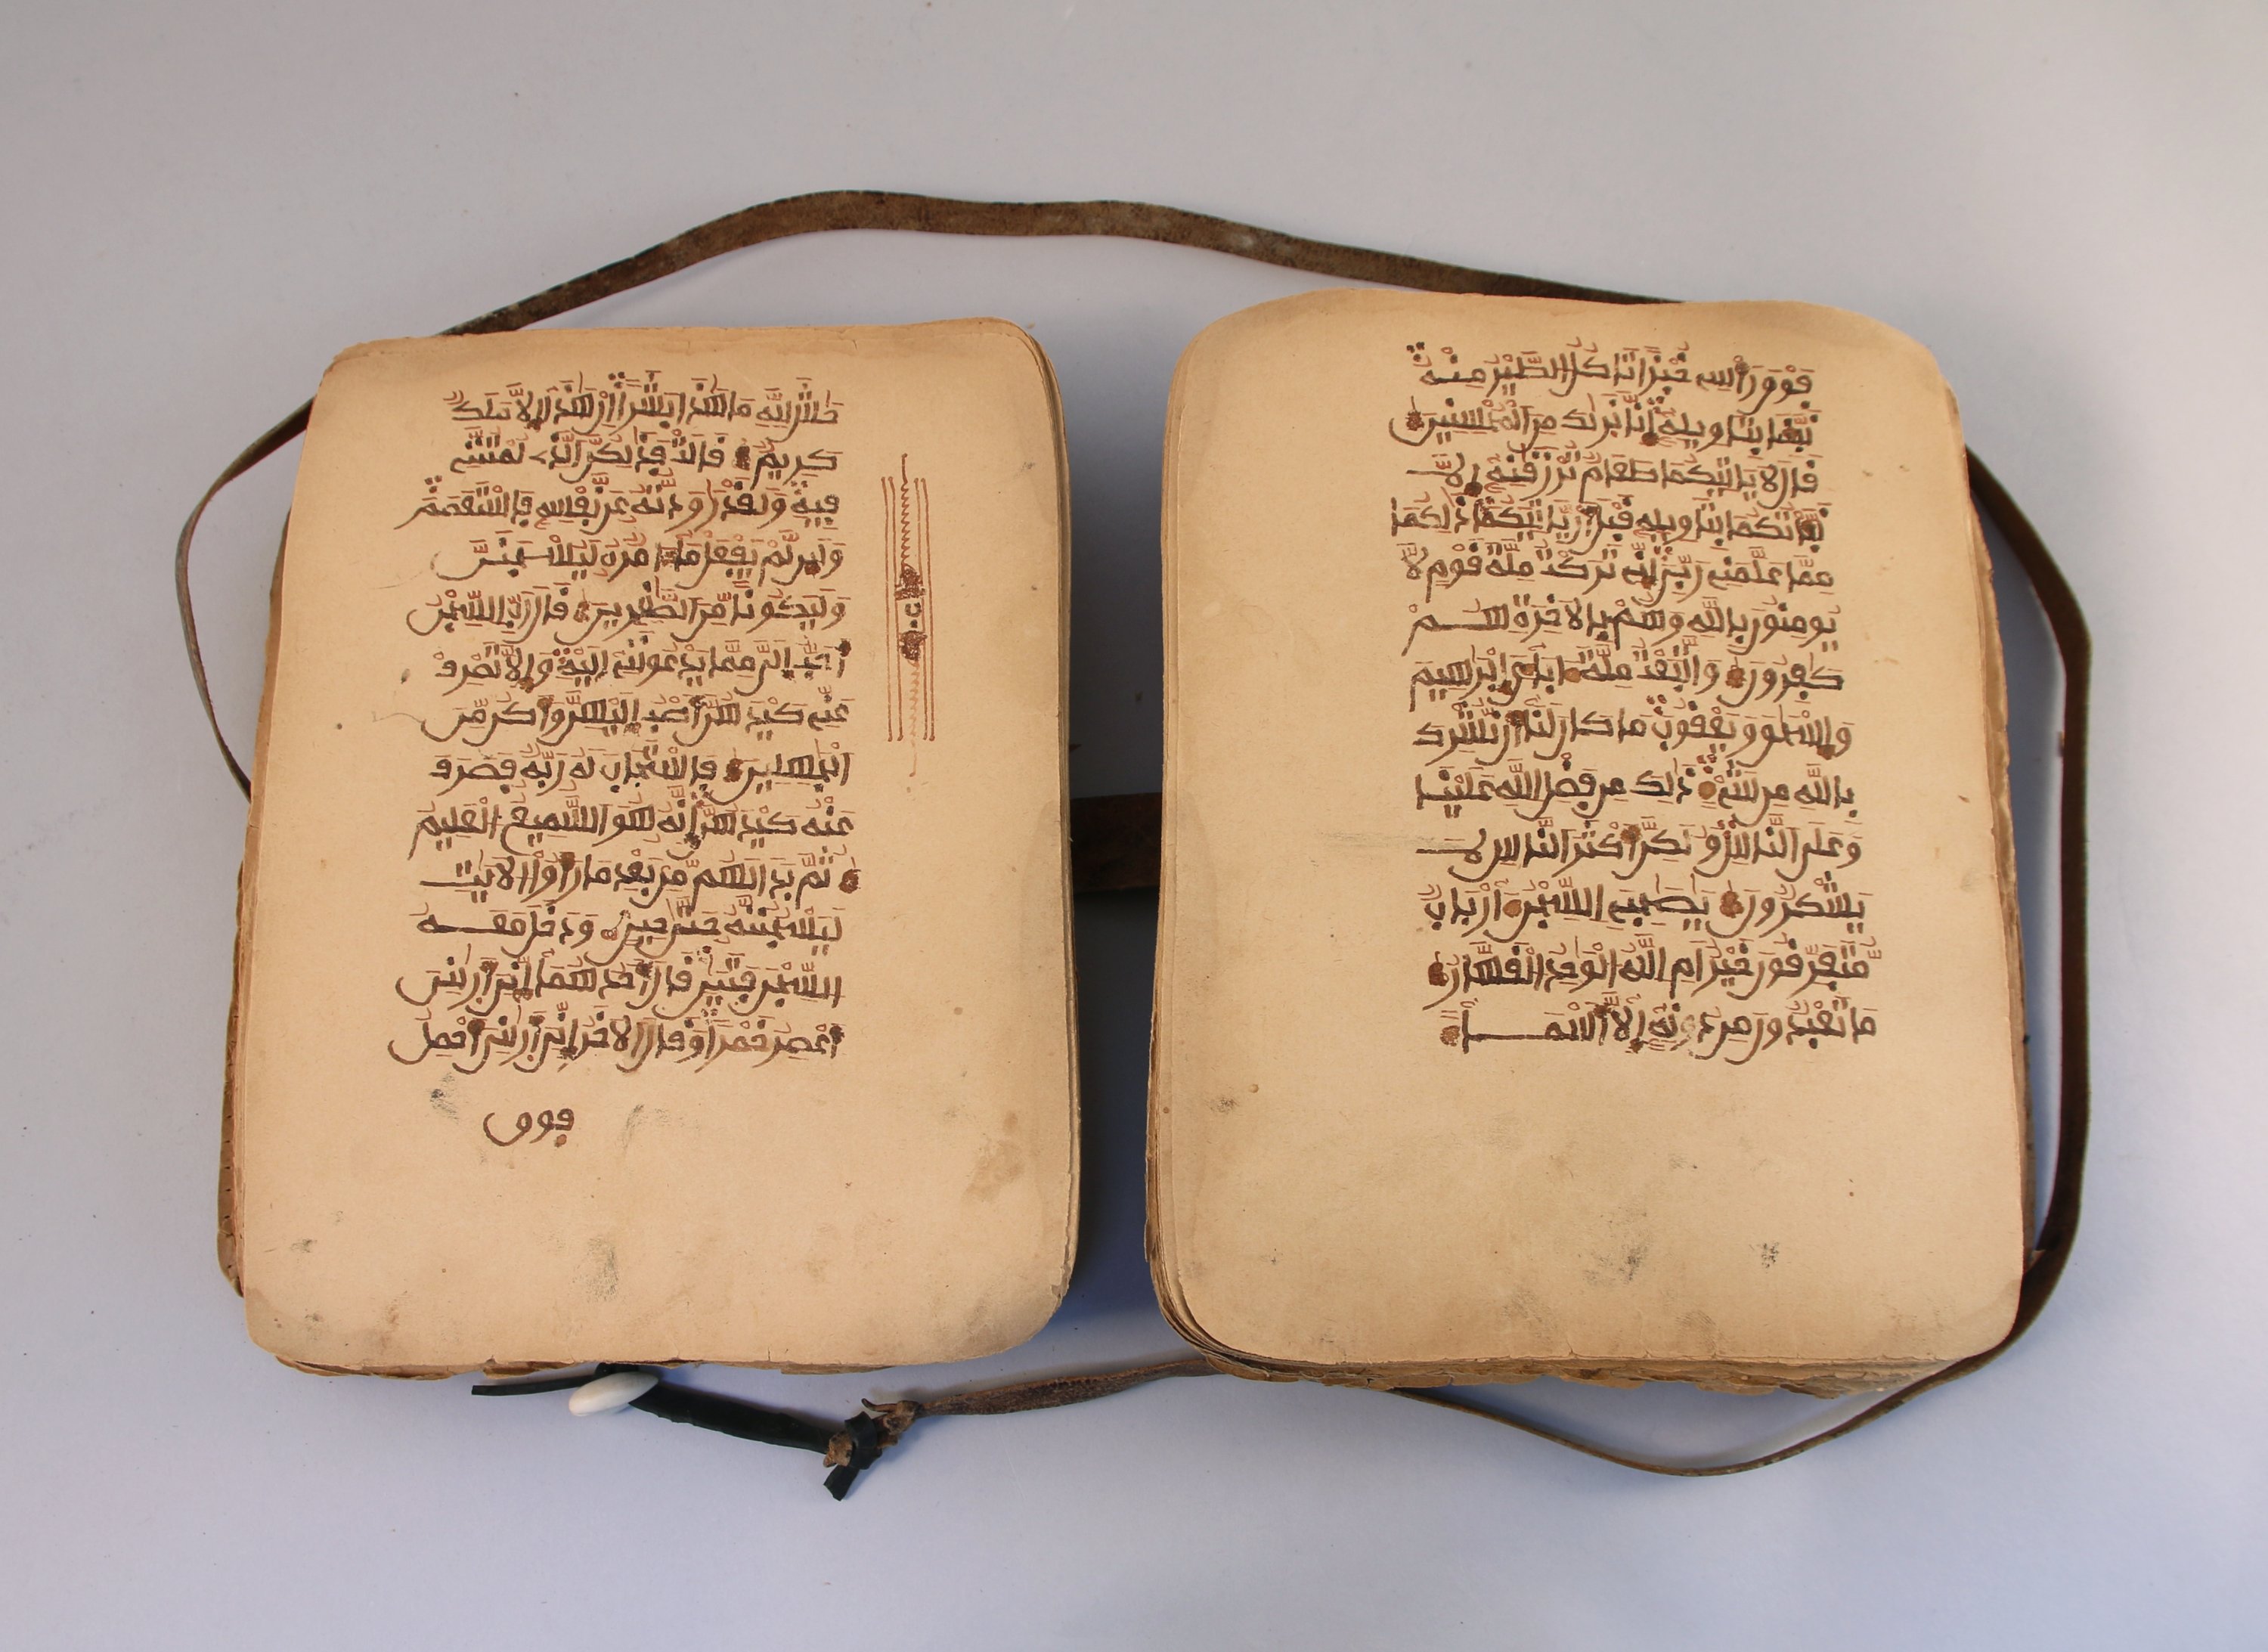 حٰش لله ما هذا بشرا ان هذا الا ملك
كريم قالت فذلكن الذي لمتنني
فيه ولقد راودته عن نفسه فاستعصم
ولين لم يفعل ما ءامره ليسجنن
وليكونا من الصغرين قال رب السجن
احب الي مما يدعونني اليه والا تصرف
عني كيدهن اصب اليهن واكن من
الجهلين فاستجاب له ربه فصرف
عنه كيدهن انه هو السميع العليم
ثم بدا لهم من بعد ما راوا الايت
ليسجننه حتى حين ودخل معه
السجن فتين قال احدهما اني اريني
اعصر خمرا وقال الاخر اني اريني احمل
فوق
فوق راسي خبزا تاكل الطير منه
نبئنا بتاويله انا نريك من المحسنين
قال لا ياتيكما طعام ترزقنه الا
نباتكما بتاويله قبل ان ياتيكما ذلكما
مما علمني ربي اني تركت ملة قوم لا
يومنون بالله وهم بالاخرة هم
كفرون واتبعت ملة ءاباءي ابرهيم
واسحق ويعقوب ما كان لنا ان نشرك
بالله من شيء ذلك من فضل الله علينا
وعلى الناس ولكن اكثر الناس لا
يشكرون يصحبي السجن ءارباب
متفرقون خير ام الله الوحد القهار
ما تعبدون من دونه الا اسما